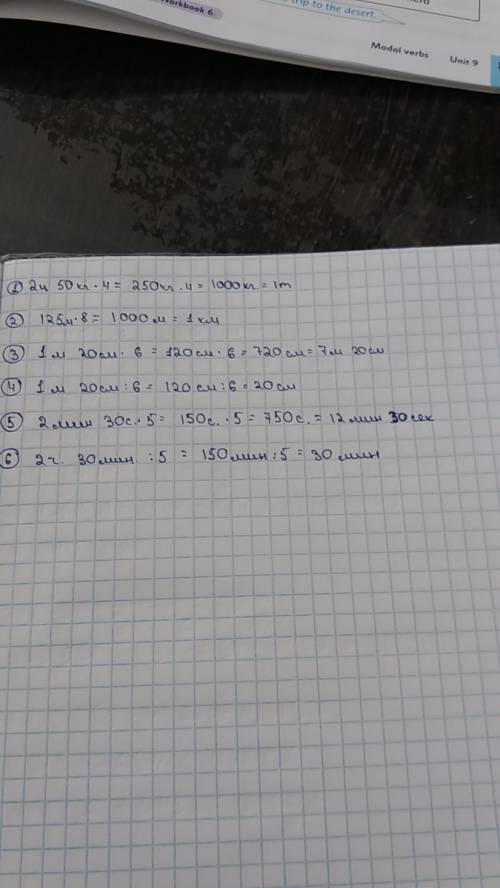 orkbook 6.
trip to the desert.
Modal verbs Unit 9
① 2ц 50кг · 4 = 250кг · 4 = 1000кг. = 1т
② 125м · 8 = 1000м = 1км
③ 1м 20см · 6 = 120см · 6 = 720см = 7м 20см
④ 1м 20см : 6 = 120см : 6 = 20см
⑤ 2мин 30с. · 5 = 150с. · 5 = 750с. = 12мин 30сек
⑥ 2ч. 30мин. : 5 = 150мин : 5 = 30мин